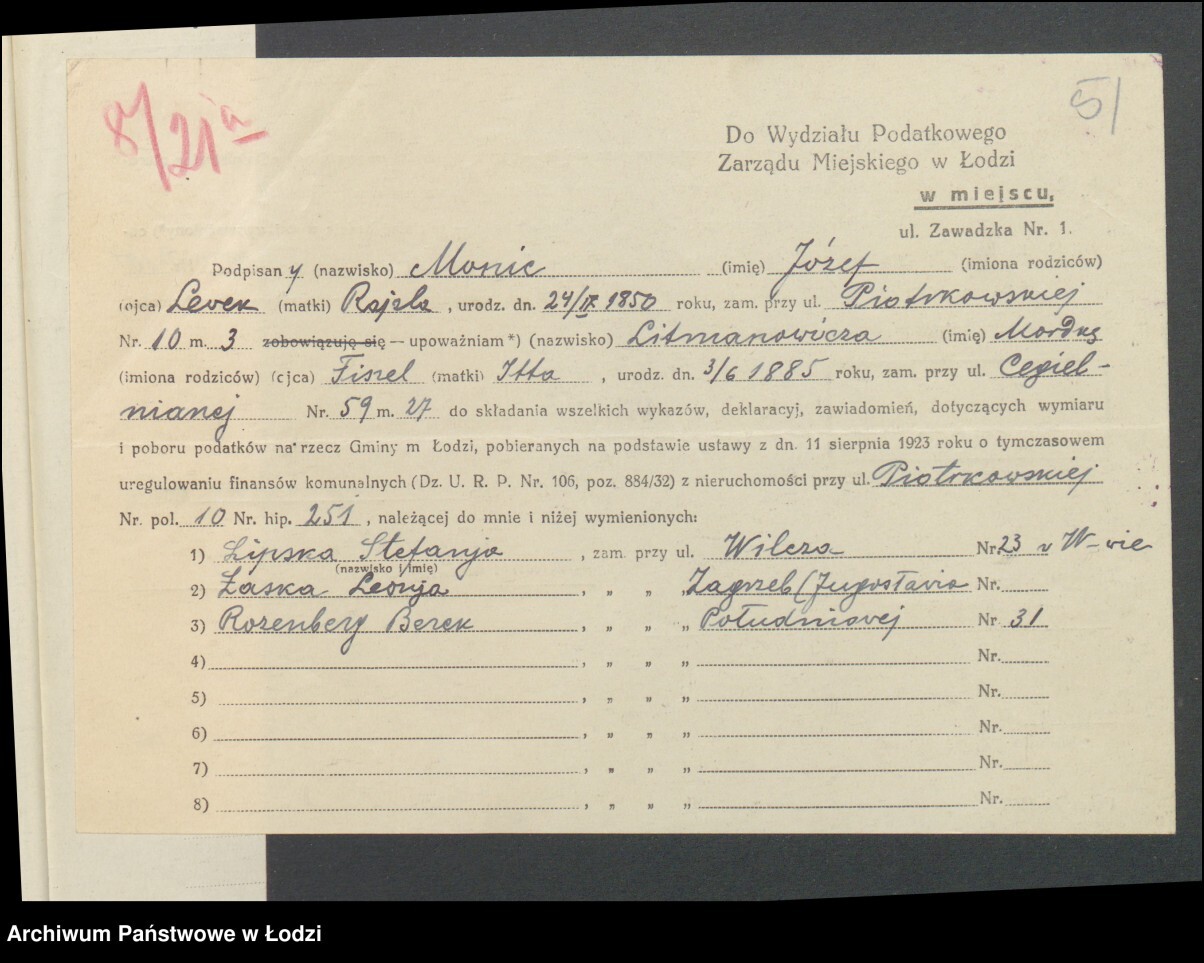 8/21a
51
Do Wydziału Podatkowego
Zarządu Miejskiego w Łodzi
w miejscu,
ul. Zawadzka Nr. 1.
Podpisany (nazwisko) Monic (imię) Józef (imiona rodziców)
(ojca) Levek (matki) Rajzla, urodz. dn. 24/IX 1850 roku, zam. przy ul. Piotrkowskiej
Nr. 10 m. 3 zobowiązuję się — upoważniam *) (nazwisko) Litmanowicza (imię) Mordkę
(imiona rodziców) (ojca) Fiszel (matki) Itta, urodz. dn. 3/6 1885 roku, zam. przy ul. Cegiel-
nianej Nr. 59 m. 27 do składania wszelkich wykazów, deklaracyj, zawiadomień, dotyczących wymiaru
i poboru podatków na rzecz Gminy m Łodzi, pobieranych na podstawie ustawy z dn. 11 sierpnia 1923 roku o tymczasowem
uregulowaniu finansów komunalnych (Dz. U. R. P. Nr. 106, poz. 884/32) z nieruchomości przy ul. Piotrkowskiej
Nr. pol. 10 Nr. hip. 251, należącej do mnie i niżej wymienionych:
1) Lipska Stefanja, zam. przy ul. Wilcza Nr. 23 v W-wie
(nazwisko i imię)
2) Łaska Leonja, „ „ „ Zagrzeb (Jugosławia Nr.
3) Rozenberg Berek, „ „ „ Południowej Nr 31
4) , „ „ „ Nr.
5) , „ „ „ Nr.
6) , „ „ „ Nr.
7) , „ „ „ Nr.
8) , „ „ „ Nr.
Archiwum Państwowe w Łodzi